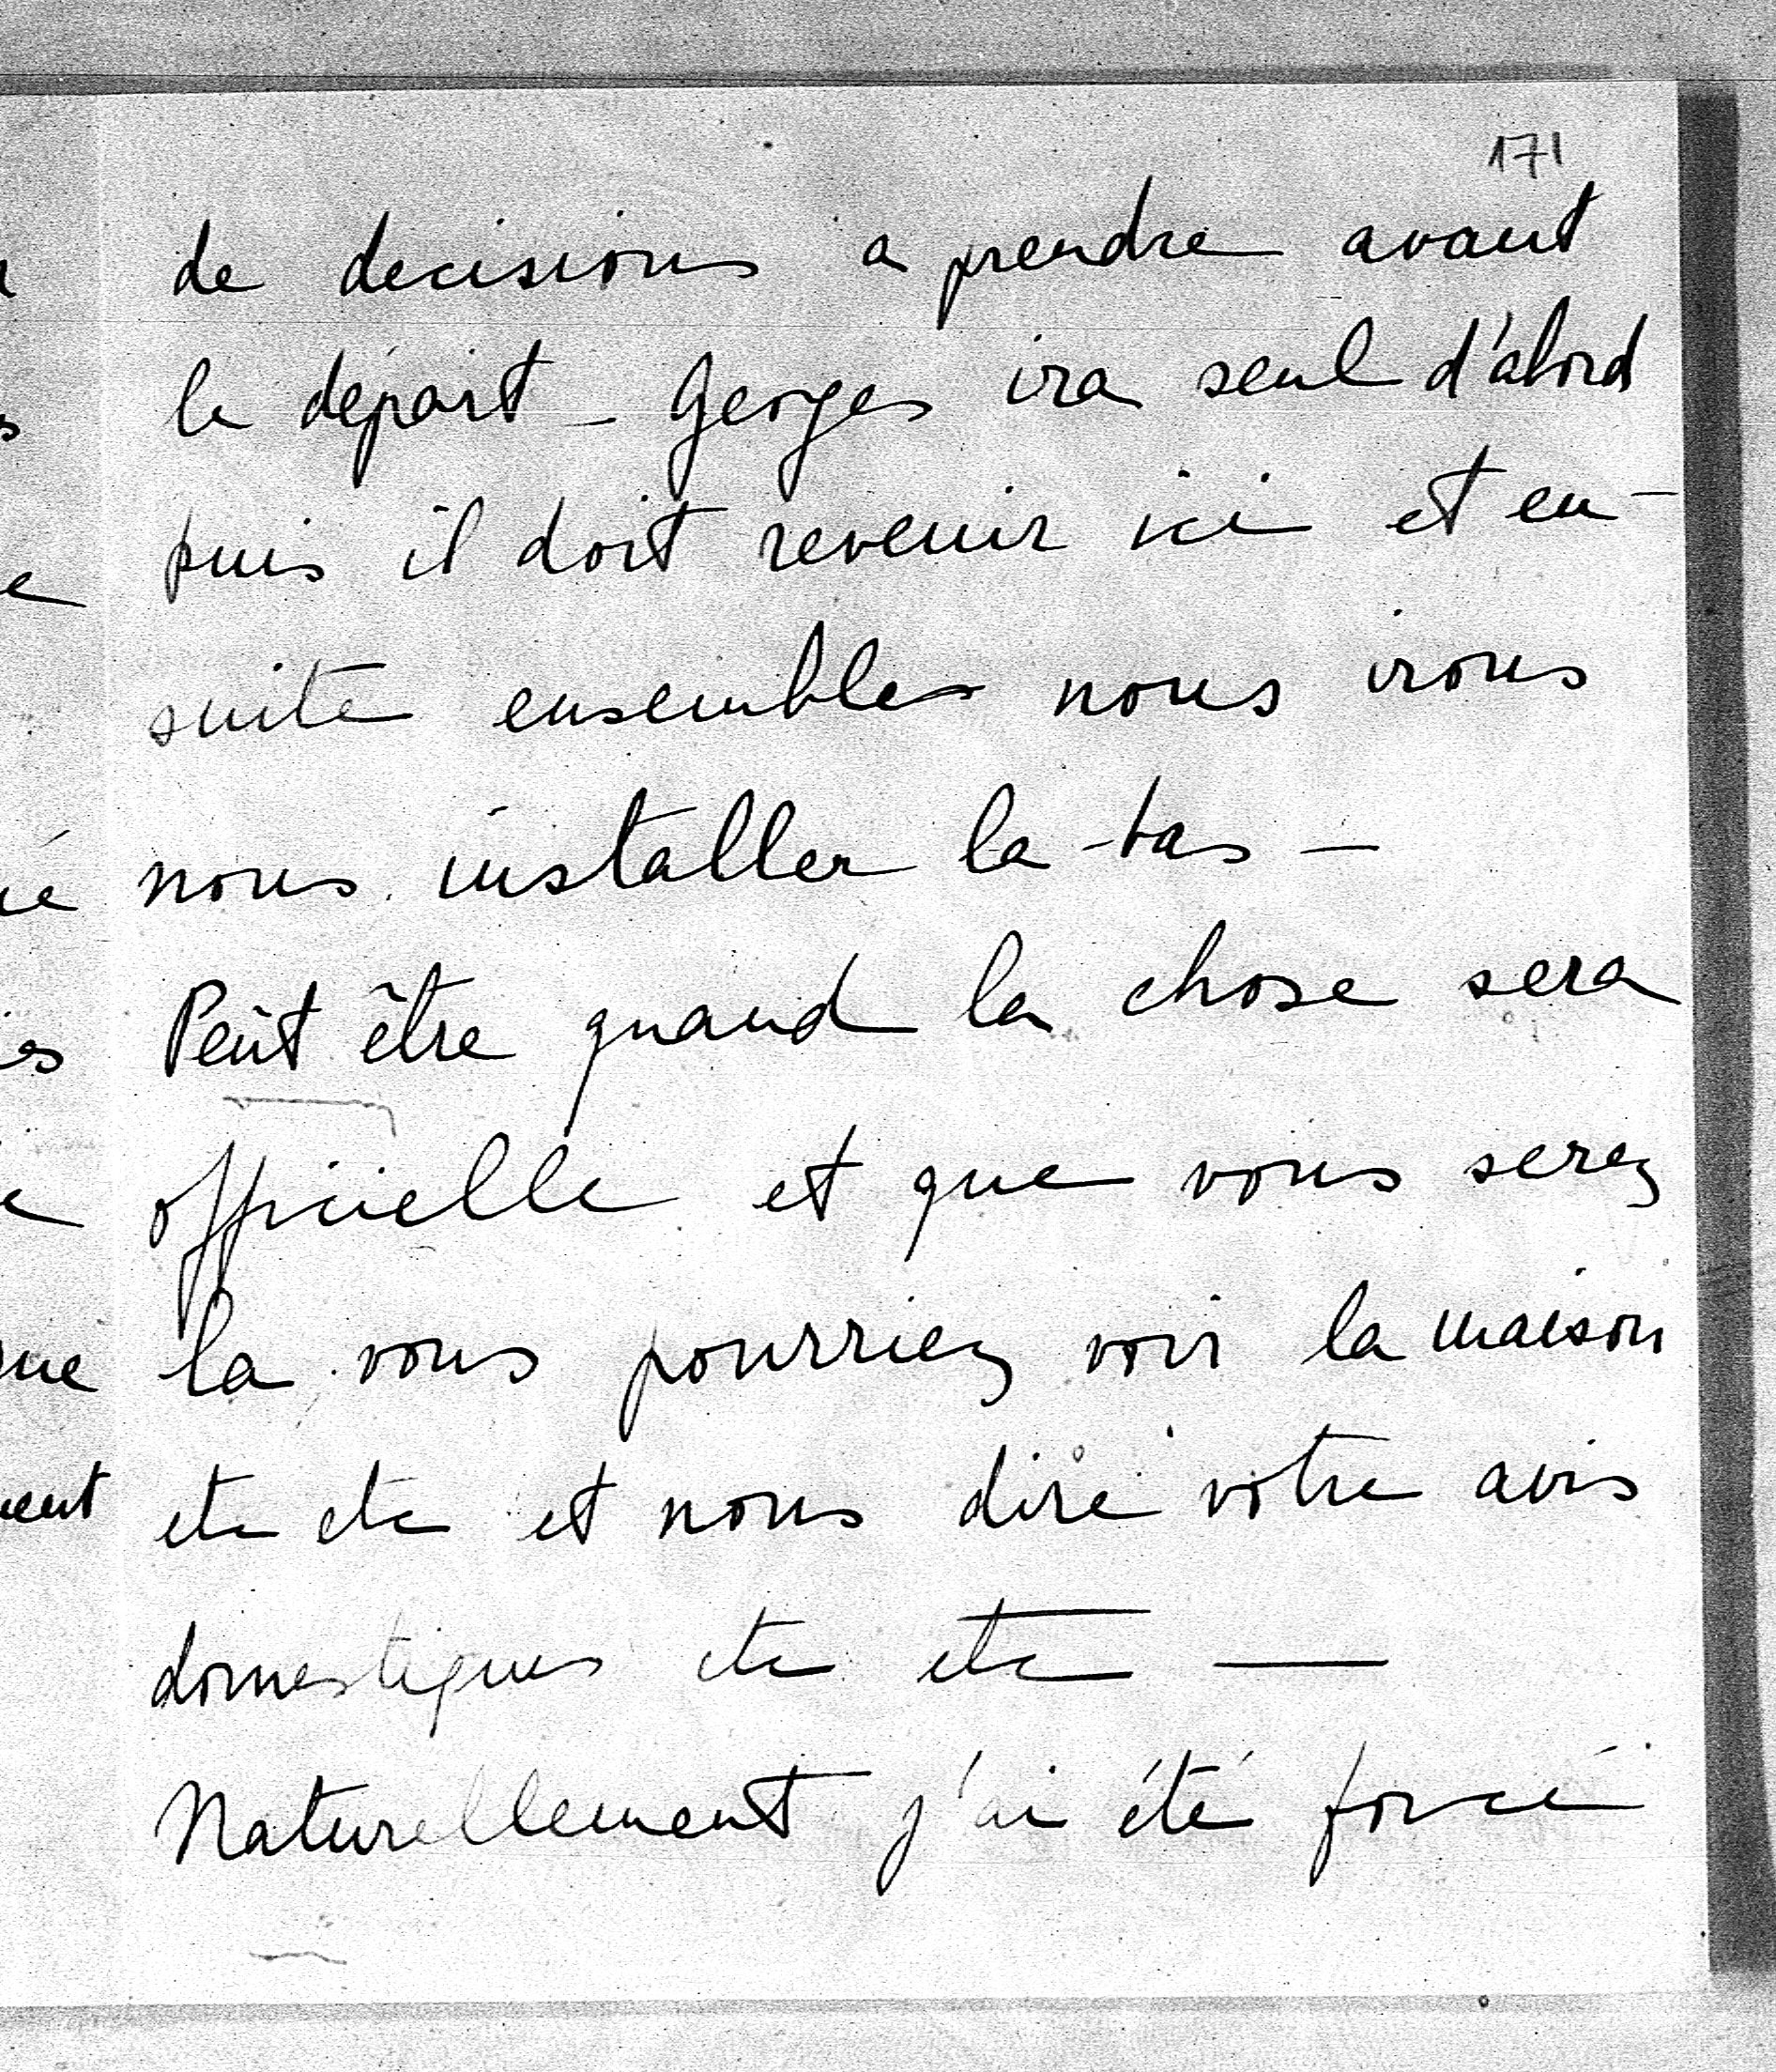 171
de decisions a prendre avant
le départ - Georges ira seul d'abord
puis il doit revenir ici et en-
suite ensembles nous irons
nous installer la-bas -
Peût être quand la chose sera
officielle et que vous serez
la vous pourriez voir la maison
etc etc et nous dire votre avis
domestiques etc etc —
Naturellement j'ai été forcé